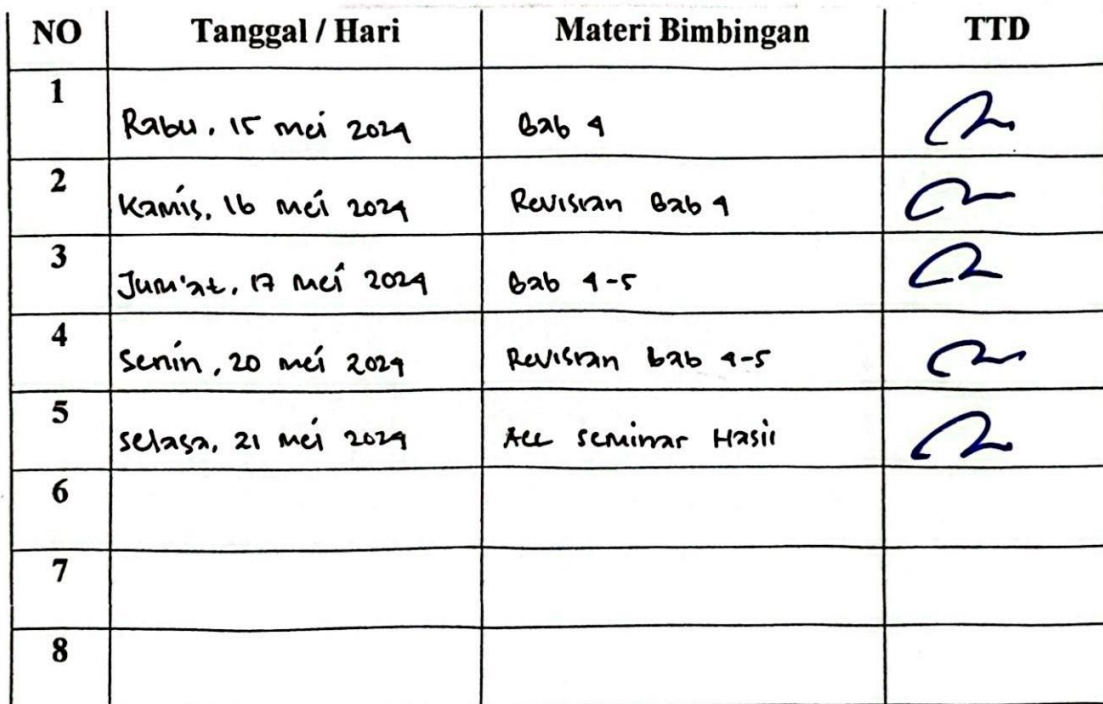 NO Tanggal / Hari Materi Bimbingan TTD
1 Rabu, 15 Mei 2024 Bab 4
2 Kamis, 16 Mei 2024 Revisian Bab 4
3 Jum'at, 17 Mei 2024 Bab 4-5
4 Senin, 20 Mei 2024 Revisian bab 4-5
5 Selasa, 21 Mei 2024 Acc Seminar Hasil
6
7
8